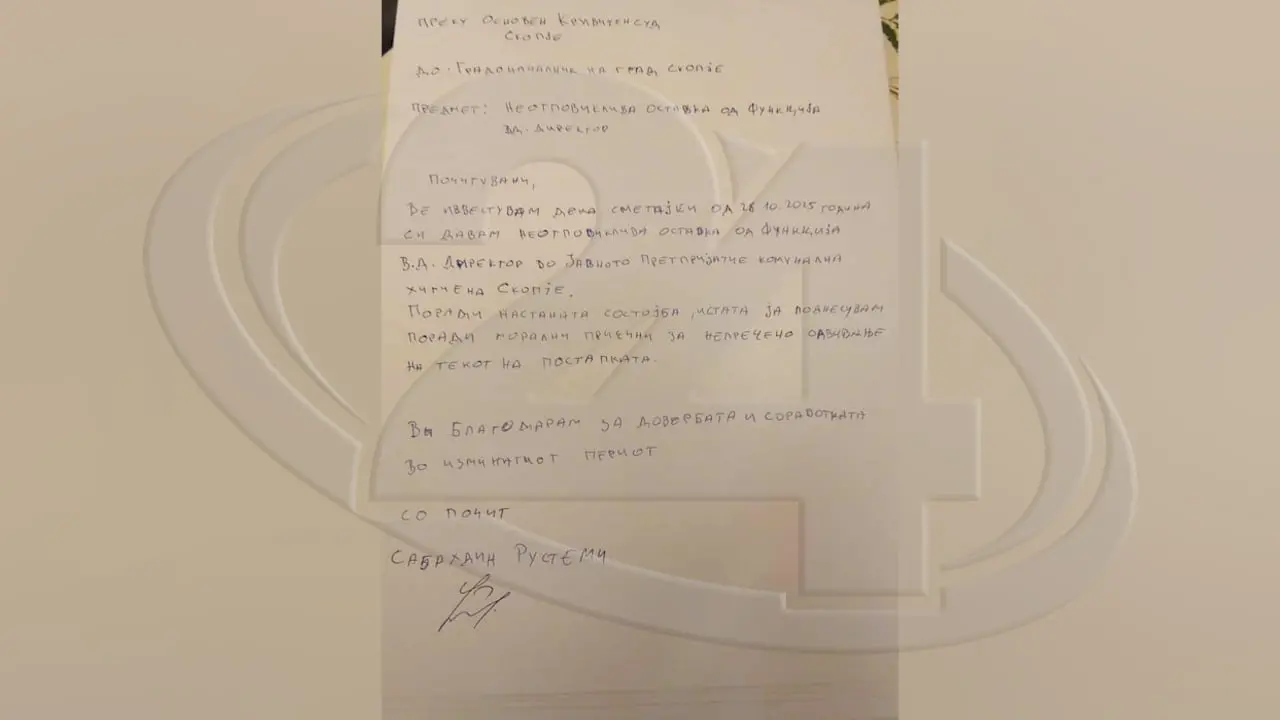 ПРЕКУ ОСНОВЕН КРИВИЧЕН СУД
СКОПЈЕ
ДО: ГРАДОНАЧАЛНИК НА ГРАД СКОПЈЕ
ПРЕДМЕТ: НЕОТПОВИКЛИВА ОСТАВКА ОД ФУНКЦИЈА
ВД. ДИРЕКТОР
ПОЧИТУВАНИ,
ВЕ ИЗВЕСТУВАМ ДЕКА СМЕТАЈКИ ОД 28.10.2025 ГОДИНА
СИ ДАВАМ НЕОТПОВИКЛИВА ОСТАВКА ОД ФУНКЦИЈА
В.Д. ДИРЕКТОР ВО ЈАВНОТО ПРЕТПРИЈАТИЕ КОМУНАЛНА
ХИГИЕНА СКОПЈЕ.
ПОРАДИ НАСТАНАТА СОСТОЈБА, ИСТАТА ЈА ПОДНЕСУВАМ
ПОРАДИ МОРАЛНИ ПРИЧИНИ ЗА НЕПРЕЧЕНО ОДВИВАЊЕ
НА ТЕКОТ НА ПОСТАПКАТА.
ВИ БЛАГОДАРАМ ЗА ДОВЕРБАТА И СОРАБОТКАТА
ВО ИЗМИНАТИОТ ПЕРИОТ
СО ПОЧИТ
САБАХДИН РУСТЕМИ
24